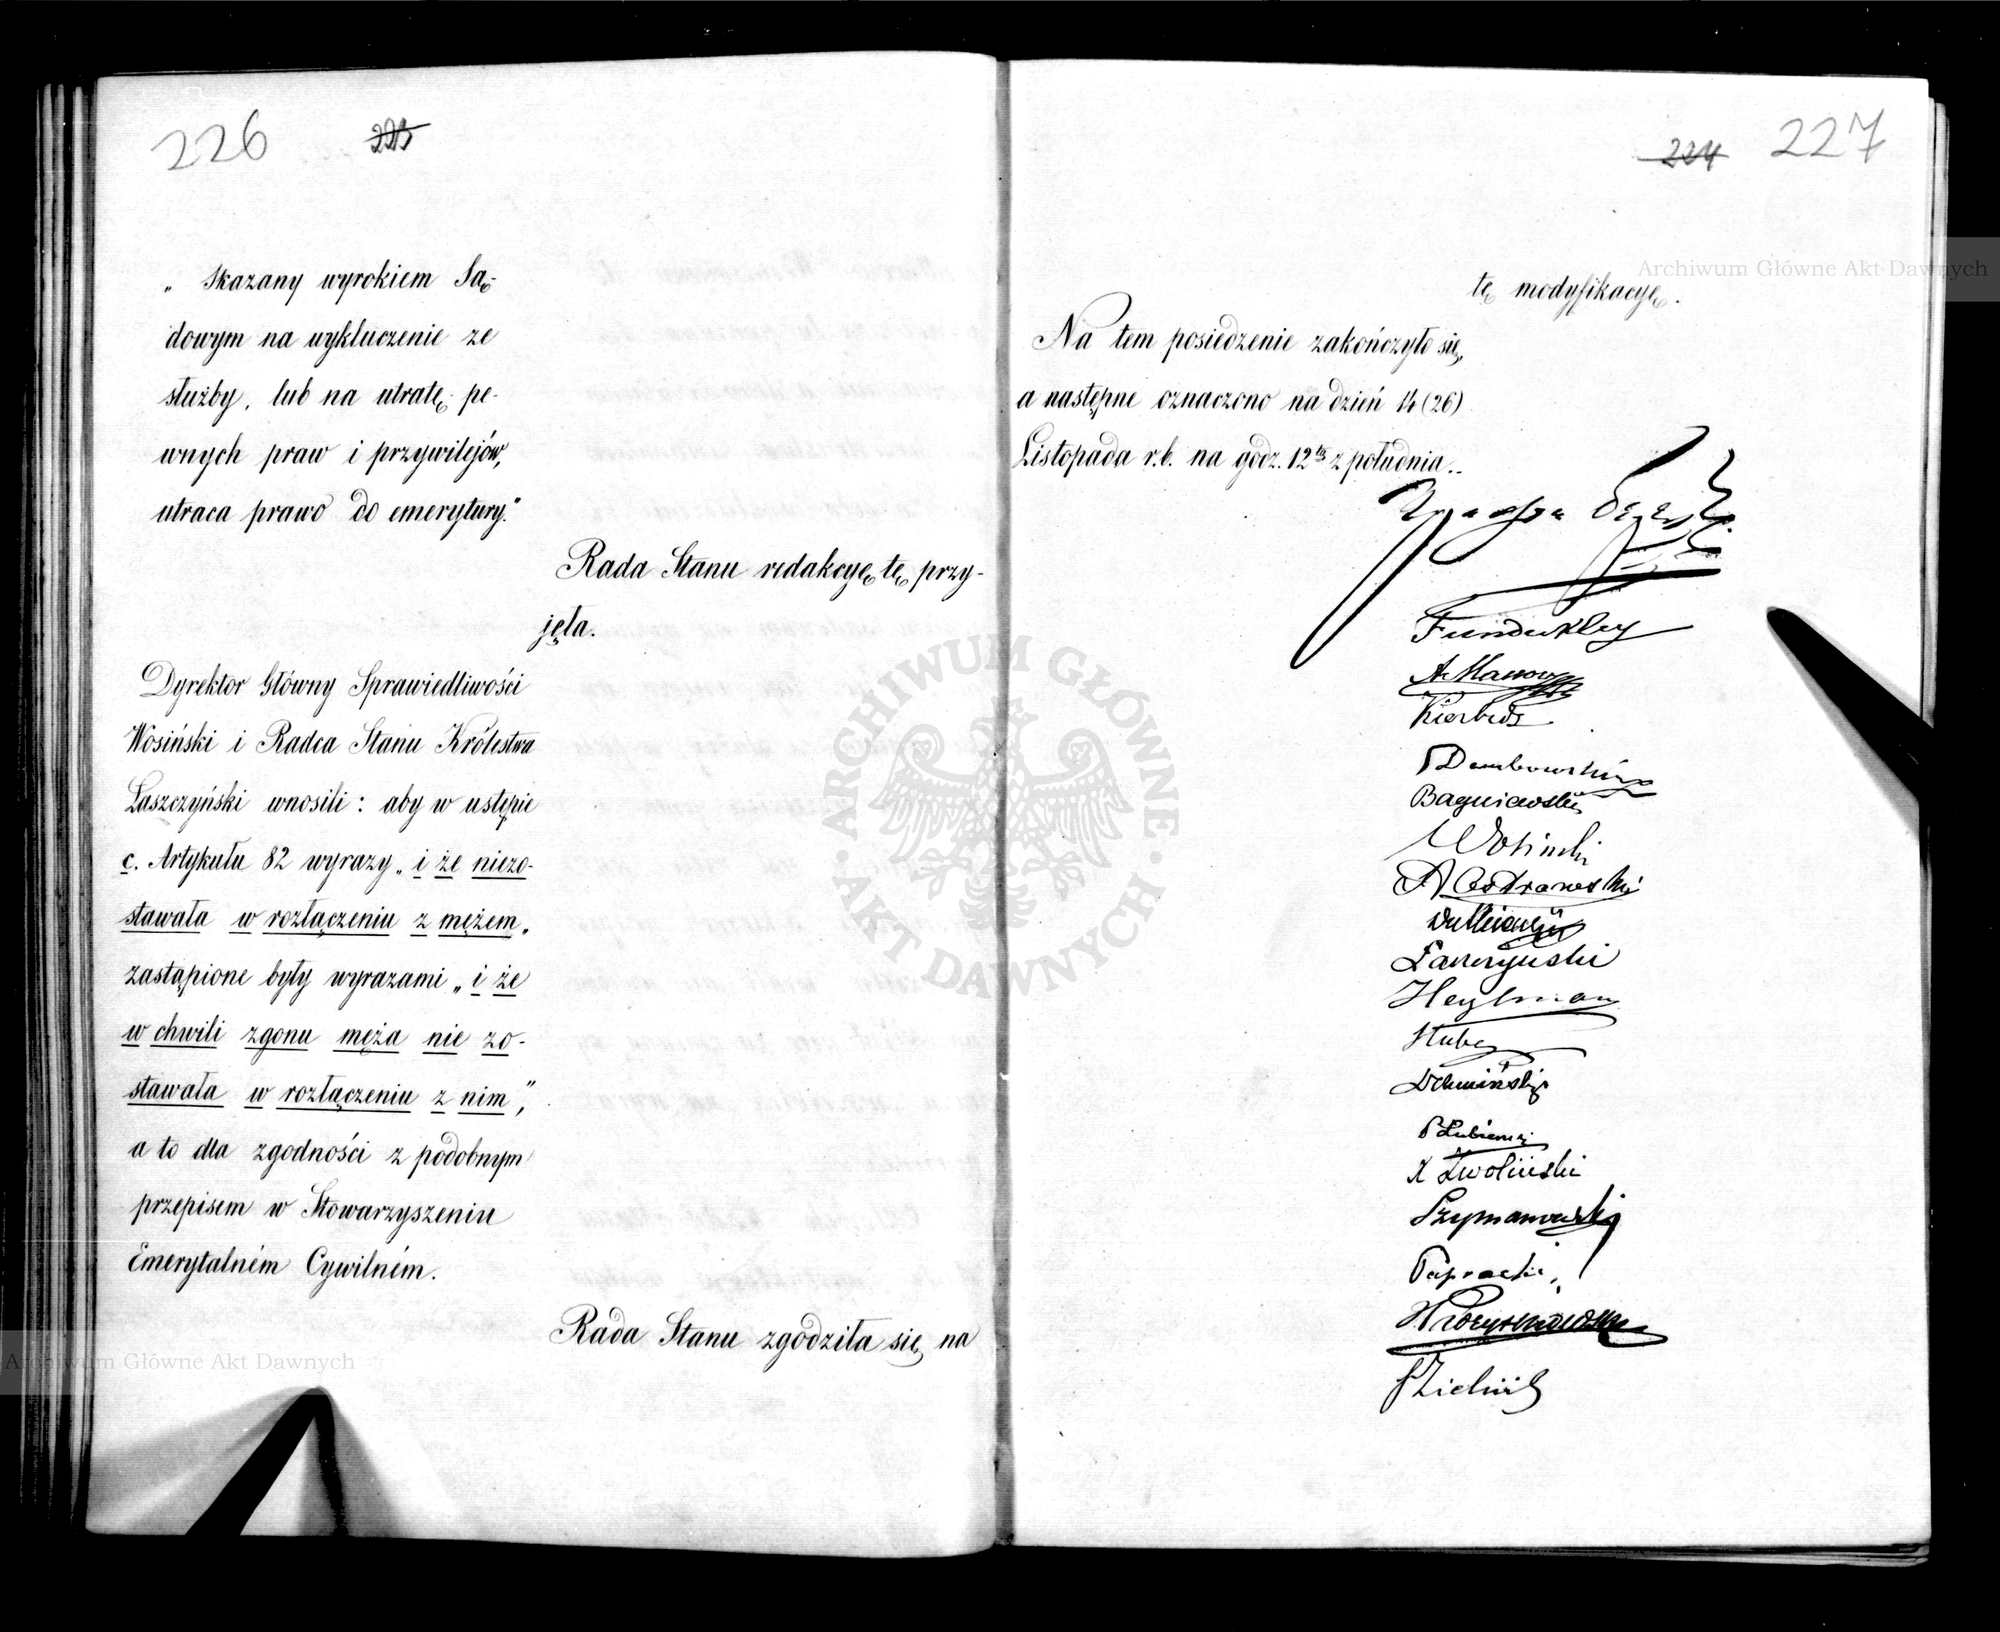 226
223
„Skazany wyrokiem Są-
dowym na wykluczenie ze
służby, lub na utratę pe-
wnych praw i przywilejów,
utraca prawo do emerytury."
Rada Stanu redakcyę tę przy-
jęła.
Dyrektor Główny Sprawiedliwości
Wosiński i Radca Stanu Królestwa
Łaszczyński wnosili: aby w ustępie
c. Artykułu 82 wyrazy „i że niezo-
stawała w rozłączeniu z mężem„
zastąpione były wyrazami „i że
w chwili zgonu męża nie zo-
stawała w rozłączeniu z nim,"
a to dla zgodności z podobnym
przepisem w Stowarzyszeniu
Emerytalném Cywilném.
Rada Stanu zgodziła się na
224 227
tę modyfikacyę.
Na tem posiedzenie zakończyło się,
a następne oznaczono na dzień 14 (26)
Listopada r.b. na godz. 12tą z południa.
Fundukley
Kierbedź
Dembowski
Bagniewski
Wosiński
A Ostrowski
Łaszczyński
Heylman
Hube
P Łubieński
K Zwoliński
Szymanowski
Paprocki
JZieliński
ARCHIWUM GŁÓWNE AKT DAWNYCH
Archiwum Główne Akt Dawnych
Archiwum Główne Akt Dawnych